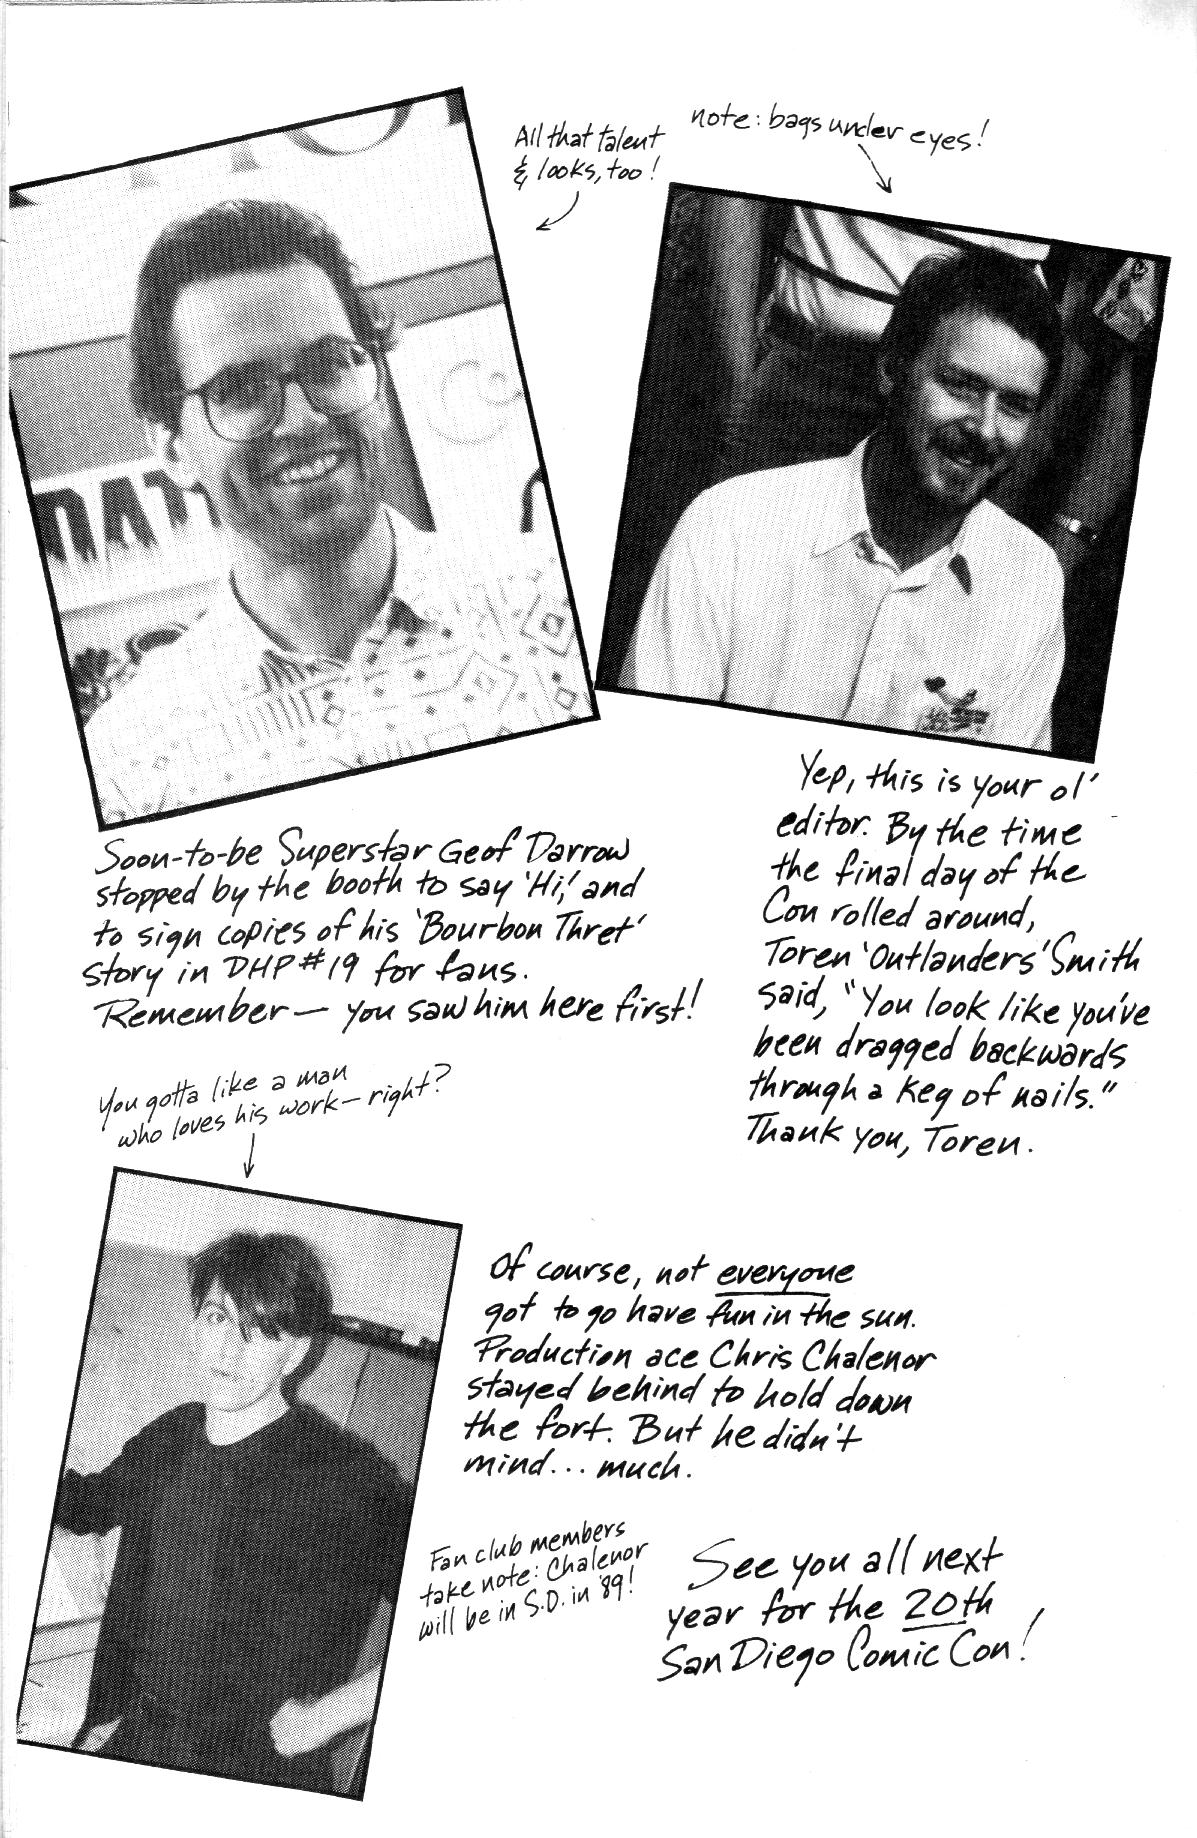 All that talent
& looks, too!
note: bags under eyes!
DAT
Soon-to-be Superstar Geof Darrow
stopped by the booth to say 'Hi,' and
to sign copies of his 'Bourbon Thret'
story in DHP #19 for fans.
Remember— you saw him here first!
Yep, this is your ol'
editor. By the time
the final day of the
Con rolled around,
Toren 'Outlanders' Smith
said, "You look like you've
been dragged backwards
through a keg of nails."
Thank you, Toren.
You gotta like a man
who loves his work— right?
Of course, not everyone
got to go have fun in the sun.
Production ace Chris Chalenor
stayed behind to hold down
the fort. But he didn't
mind... much.
Fan club members
take note: Chalenor
will be in S.D. in '89!
See you all next
year for the 20th
San Diego Comic Con!